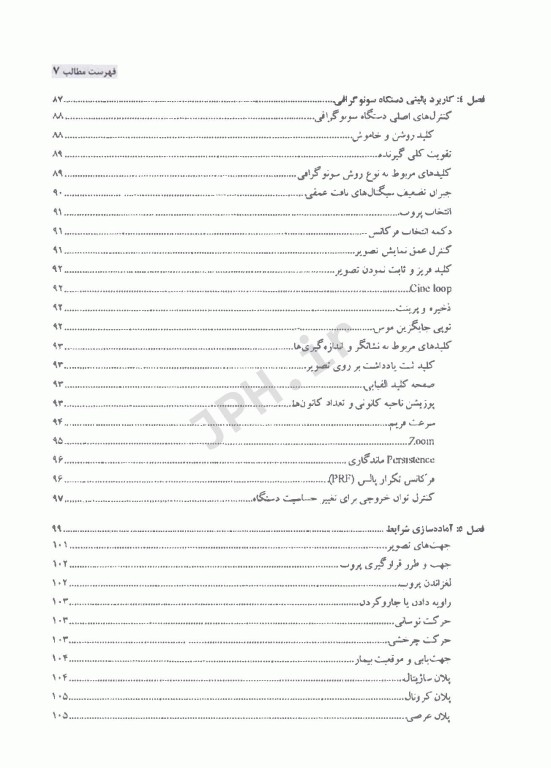 فهرست مطالب ۷
فصل ۴: کاربرد بالینی دستگاه سونوگرافی ۸۷
کنترل‌های اصلی دستگاه سونوگرافی ۸۸
کلید روشن و خاموش ۸۸
تقویت کلی گیرنده ۸۹
کلیدهای مربوط به نوع روش سونوگرافی ۸۹
جبران تضعیف سیگنال‌های بافت عمقی ۹۰
انتخاب پروب ۹۱
دکمه انتخاب فرکانس ۹۱
کنترل عمق نمایش تصویر ۹۱
کلید فریز و ثابت نمودن تصویر ۹۲
Cine loop ۹۲
ذخیره و پرینت ۹۲
توپی جایگزین موس ۹۲
کلیدهای مربوط به نشانگر و اندازه‌گیری‌ها ۹۳
کلید ثبت یادداشت بر روی تصویر ۹۳
صفحه کلید الفبایی ۹۳
پوزیشن ناحیه کانونی و تعداد کانون‌ها ۹۳
سرعت فریم ۹۴
Zoom ۹۵
Persistence ماندگاری ۹۶
فرکانس تکرار پالس (PRF) ۹۶
کنترل توان خروجی برای تغییر حساسیت دستگاه ۹۷
فصل ۵: آماده‌سازی شرایط ۹۹
جهت‌های تصویر ۱۰۱
جهت و طرز قرارگیری پروب ۱۰۲
لغزاندن پروب ۱۰۲
زاویه دادن یا جاروکردن ۱۰۳
حرکت نوسانی ۱۰۳
حرکت چرخشی ۱۰۳
جهت‌یابی و موقعیت بیمار ۱۰۴
پلان ساژیتال ۱۰۴
پلان کرونال ۱۰۵
پلان عرضی ۱۰۵
JPH.ir